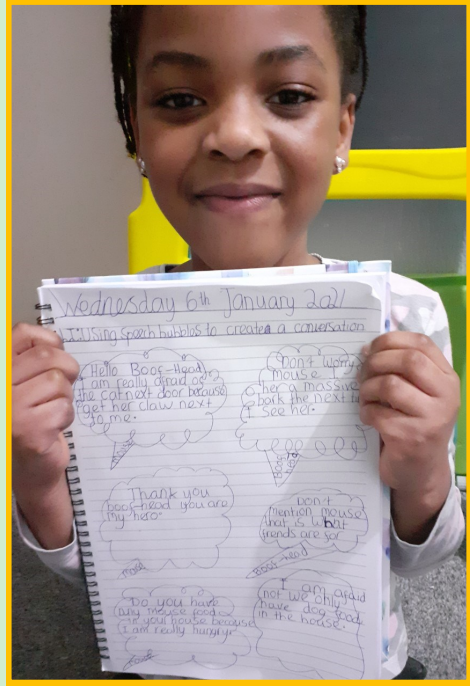 Wednesday 6th January 2021
Using speech bubbles to create a conversation
Hello Boof-Head
I am really afraid of
the cat next door because
get her claw next
to me.
Mouse
Don't worry
mouse
her a massive
bark the next ti
I see her.
Boof
head
Thank you
boof-head you are
my hero.
Mouse
Don't
mention mouse
that is what
friends are for
Boof-head
Do you have
any mouse food
in your house because
I am really hungry.
Mouse
I am afraid
not we only
have dog food
in the house.